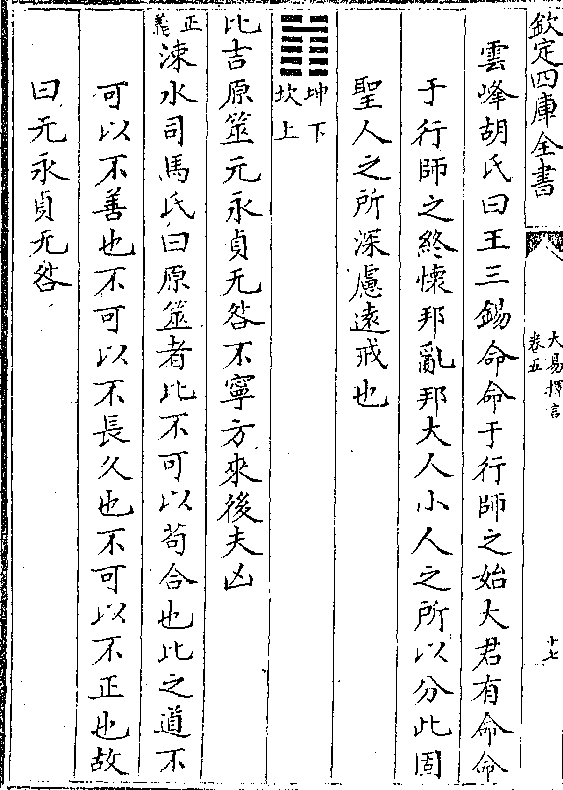 欽定四庫全書
大易擇言
卷五
十七
雲峰胡氏曰王三錫命命于行師之始大君有命命
于行師之終懷邦亂邦大人小人之所以分此固
聖人之所深慮遠戒也
坤下
坎上
比吉原筮元永貞无咎不寧方來後夫凶
正義
涑水司馬氏曰原筮者比不可以苟合也比之道不
可以不善也不可以不長久也不可以不正也故
曰元永貞无咎